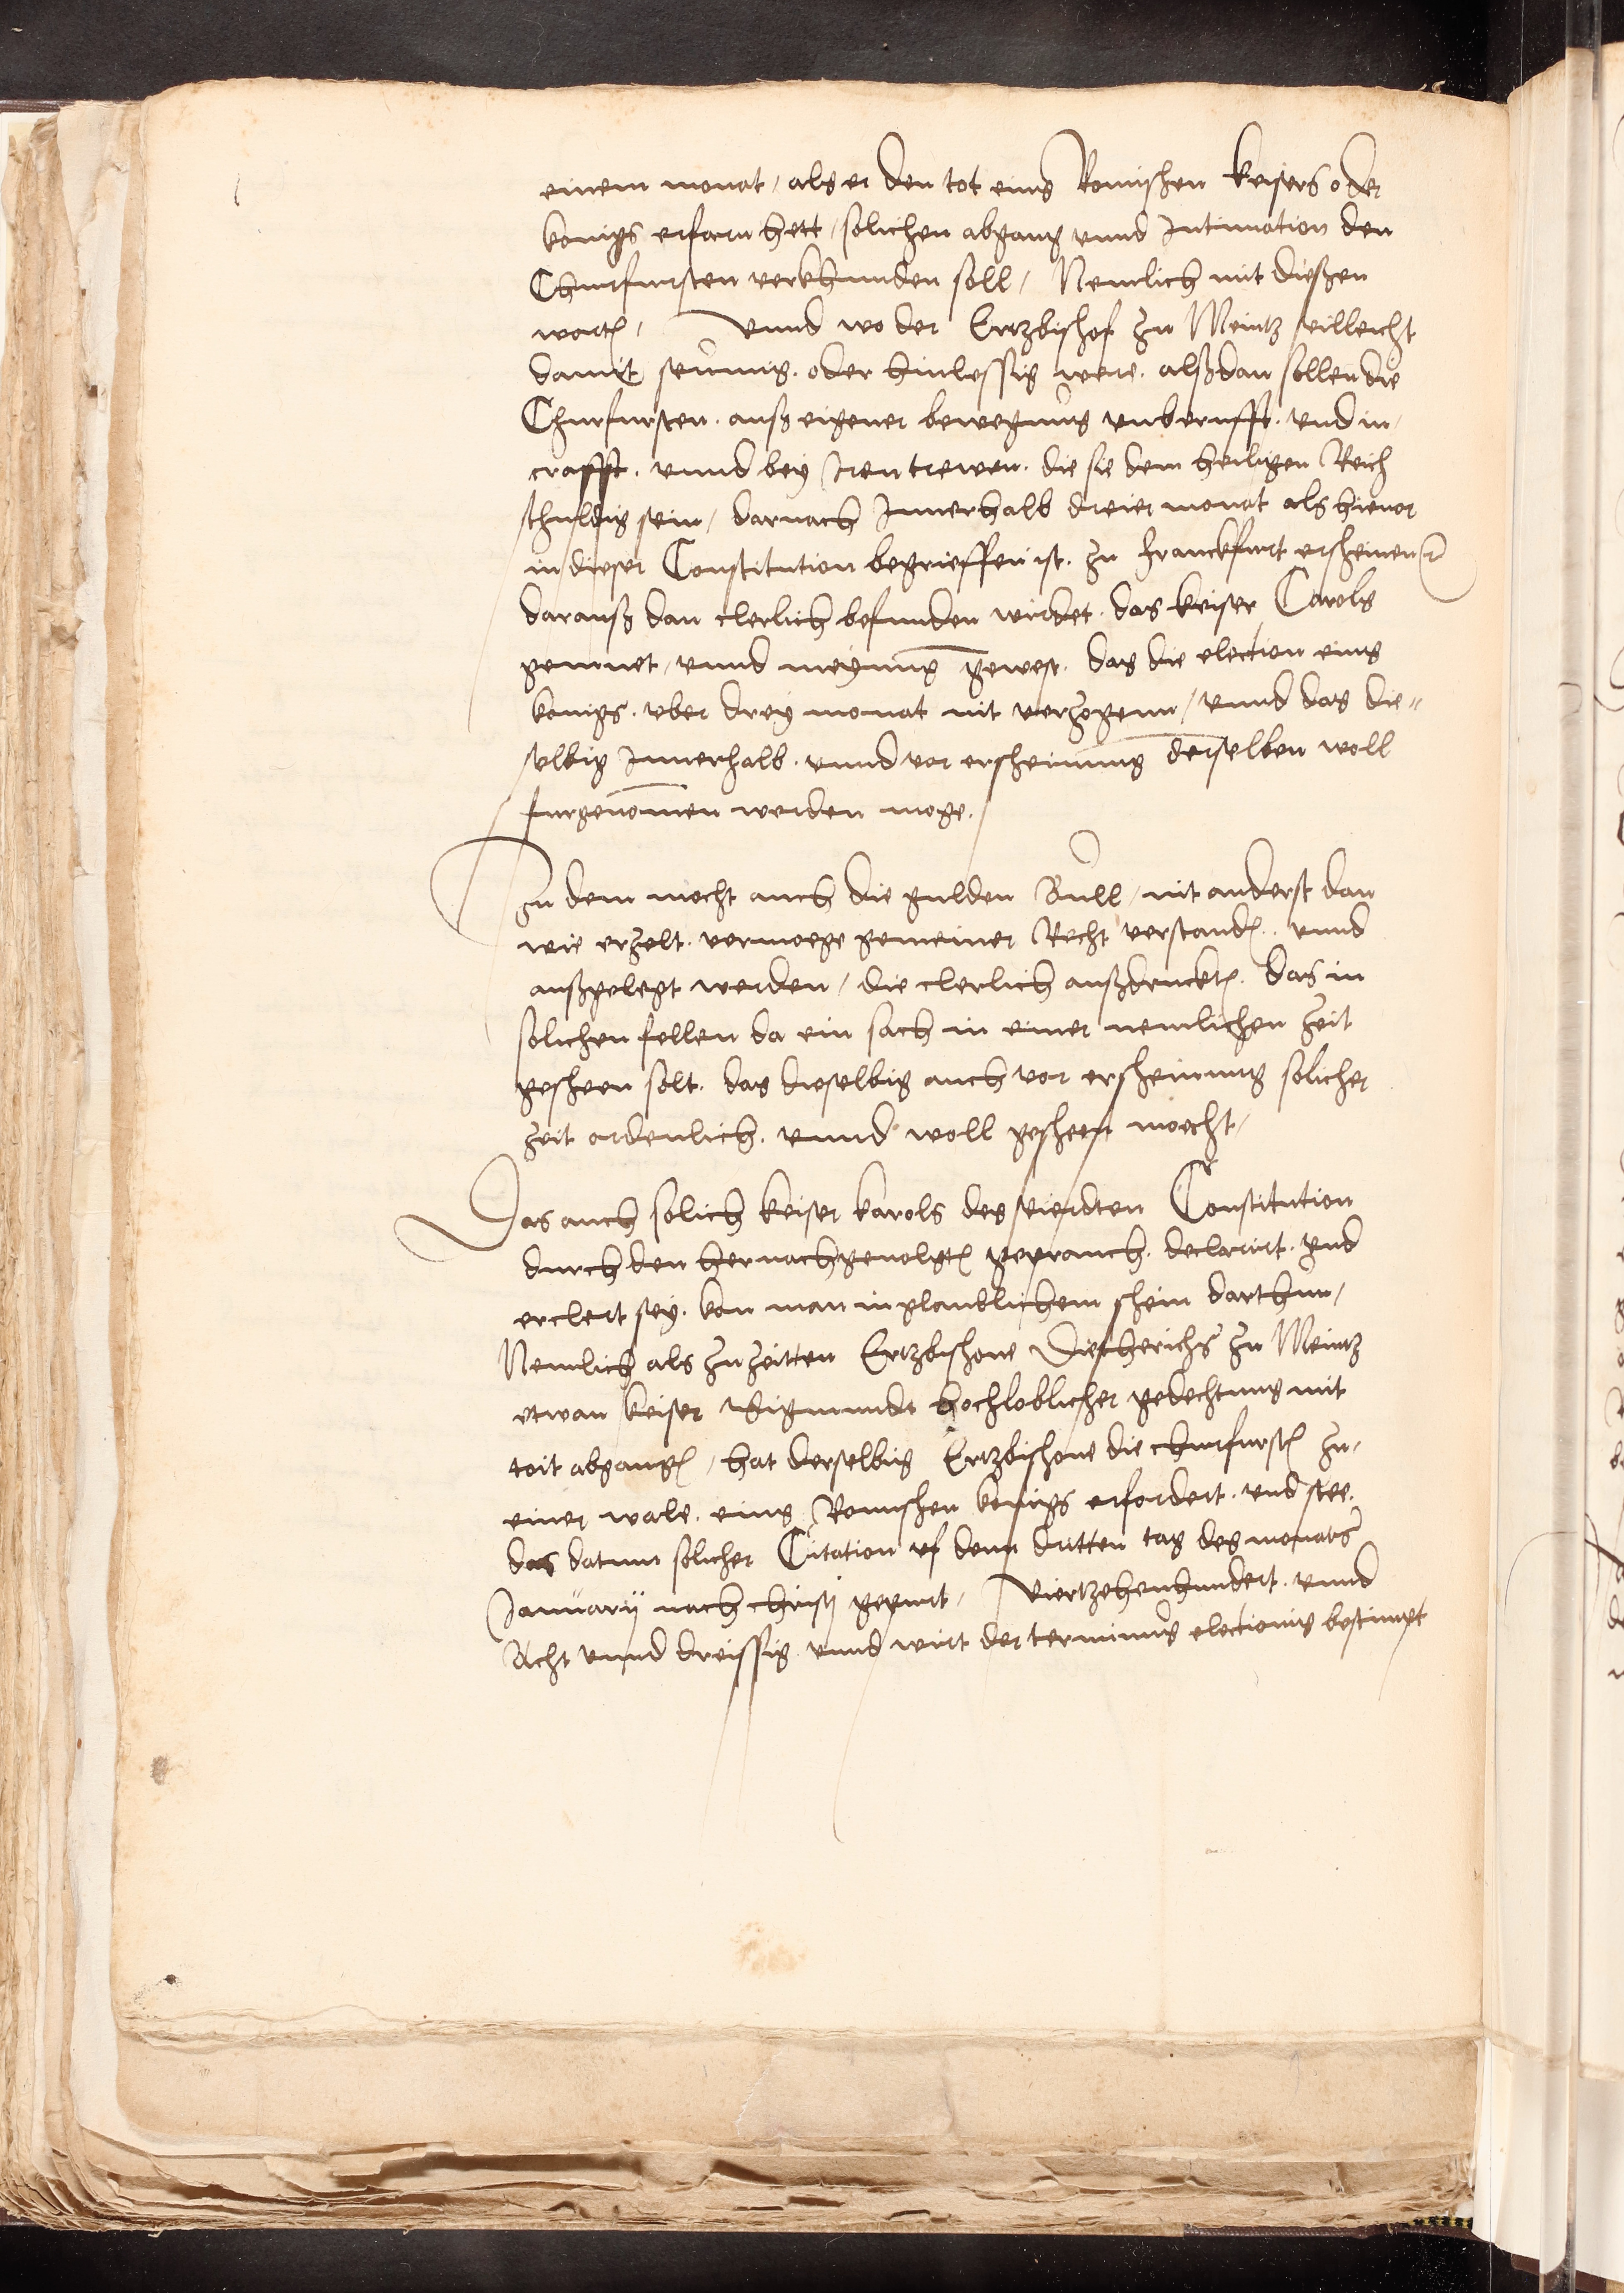 einem monat, als er den tot eins Romischen keisers oder
konigs erfarn hett, solichen abgang vnnd Intimation den
Churfursten verkhunden soll, Nemlich mit dießen
worten, Vnnd wo der Ertzbischof zu Meintz villeicht
damit seumig. oder hinlessig were. alßdan sollen die
Churfursten. auß eigener bewegung vnberufft. vnd in
crafft. vnnd bey Iren trewen. die sie dem heiligen Reich
schuldig sein, darnach Innerhalb dreier monat als hieuor
in dieser Constitution begrieffen ist. zu franckfurt erscheinen ꝛc
darauß dan clerlich befunden wirdet. das keiser Carols
gemuet, vnnd meynung gewest. das die election eins
konigs. vber drey monat nit verzogenn, vnnd das die⸗
selbig Innerhalb. vnnd vor erscheinung derselben woll
furgenomen werden moge.
Zu dem mocht auch die gulden Bull, nit anderst dan
wie erzelt. vermoege gemeiner Recht verstanden.. vnnd
außgelegt werden, die clerlich außdrucken. das in
solichen fellen da ein sach in einer nemlichen zeit
gescheen solt. das dieselbig auch vor erscheinung solicher
zeit ordenlich. vnnd woll gescheen moecht,
Das auch solich keiser karols des vierdten Constitution
durch den hernachgeuolgten geprauch. declarirt. vnd
erclert sey. kan man in glaublichem schein darthun,
Nemlich als zu zeitten Ertzbischoue Dietherichs zu Meintz
etwan keiser Sigmundt hochloblicher gedechtnus mit
toit abgangen, hat derselbig Ertzbischoue die churfursten zu
einer wale. eins Romischen konigs erfordert. vnd stee.
das datum solicher Citation vf denn dritten tag des monats
Januarij nach christi gepurt, Viertzehenhundert. vnnd
Acht vnnd dreissig vnnd wirt der terminus electionis bestimpt